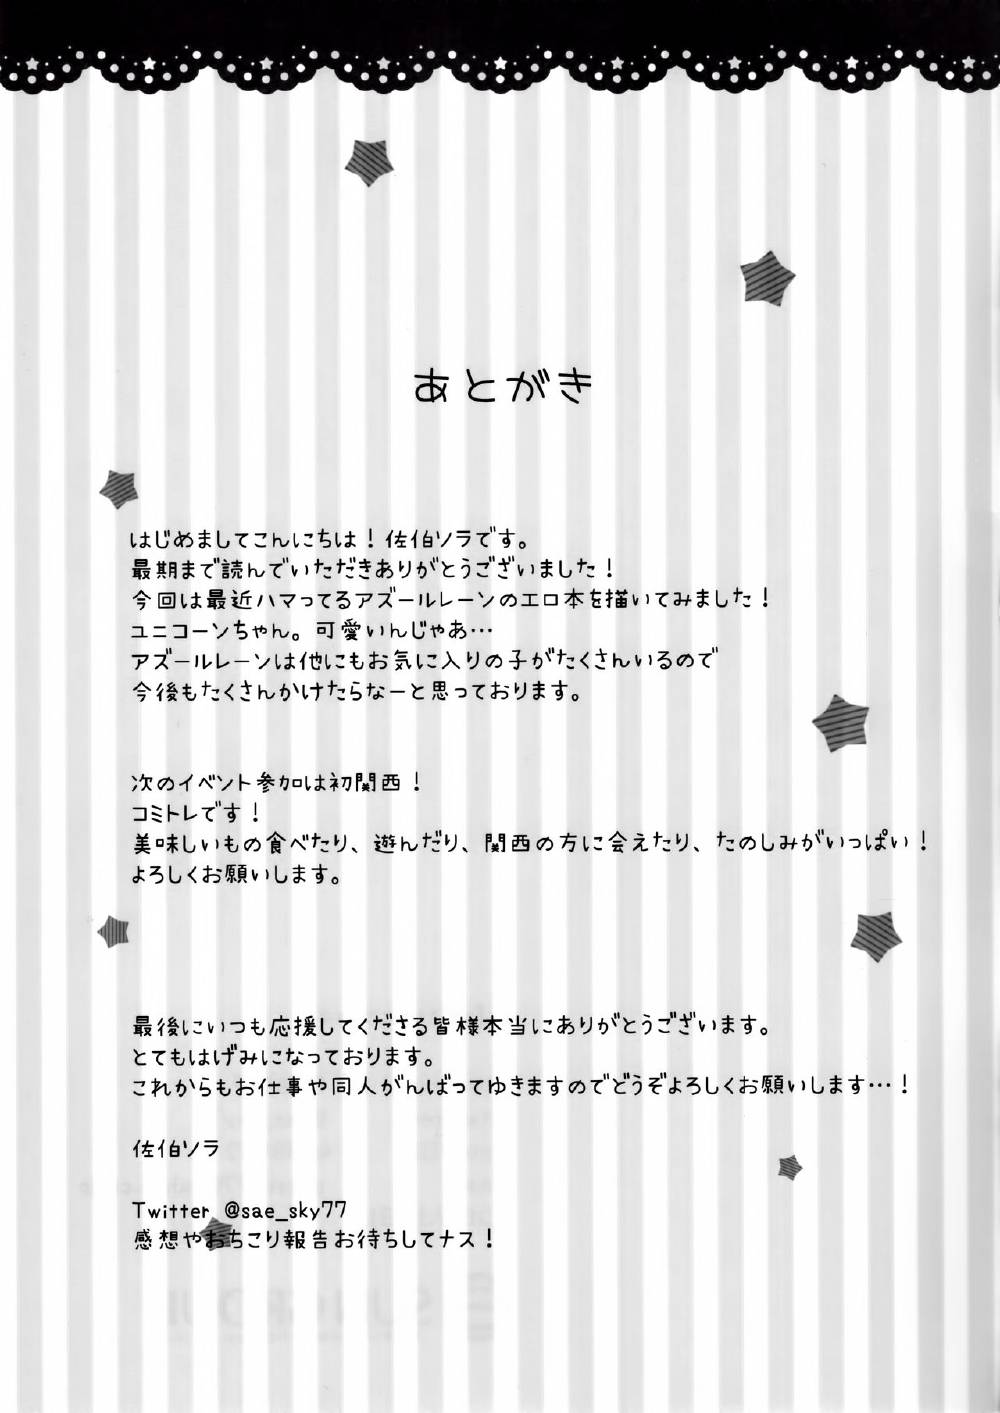 あとがき
はじめましてこんにちは！佐伯ソラです。
最期まで読んでいただきありがとうございました！
今回は最近ハマってるアズールレーンのエロ本を描いてみました！
ユニコーンちゃん。可愛いんじゃあ…
アズールレーンは他にもお気に入りの子がたくさんいるので
今後もたくさんかけたらなーと思っております。
次のイベント参加は初関西！
コミトレです！
美味しいもの食べたり、遊んだり、関西の方に会えたり、たのしみがいっぱい！
よろしくお願いします。
最後にいつも応援してくださる皆様本当にありがとうございます。
とてもはげみになっております。
これからもお仕事や同人がんばってゆきますのでどうぞよろしくお願いします…！
佐伯ソラ
Twitter @sae_sky77
感想やおちこり報告お待ちしてナス！